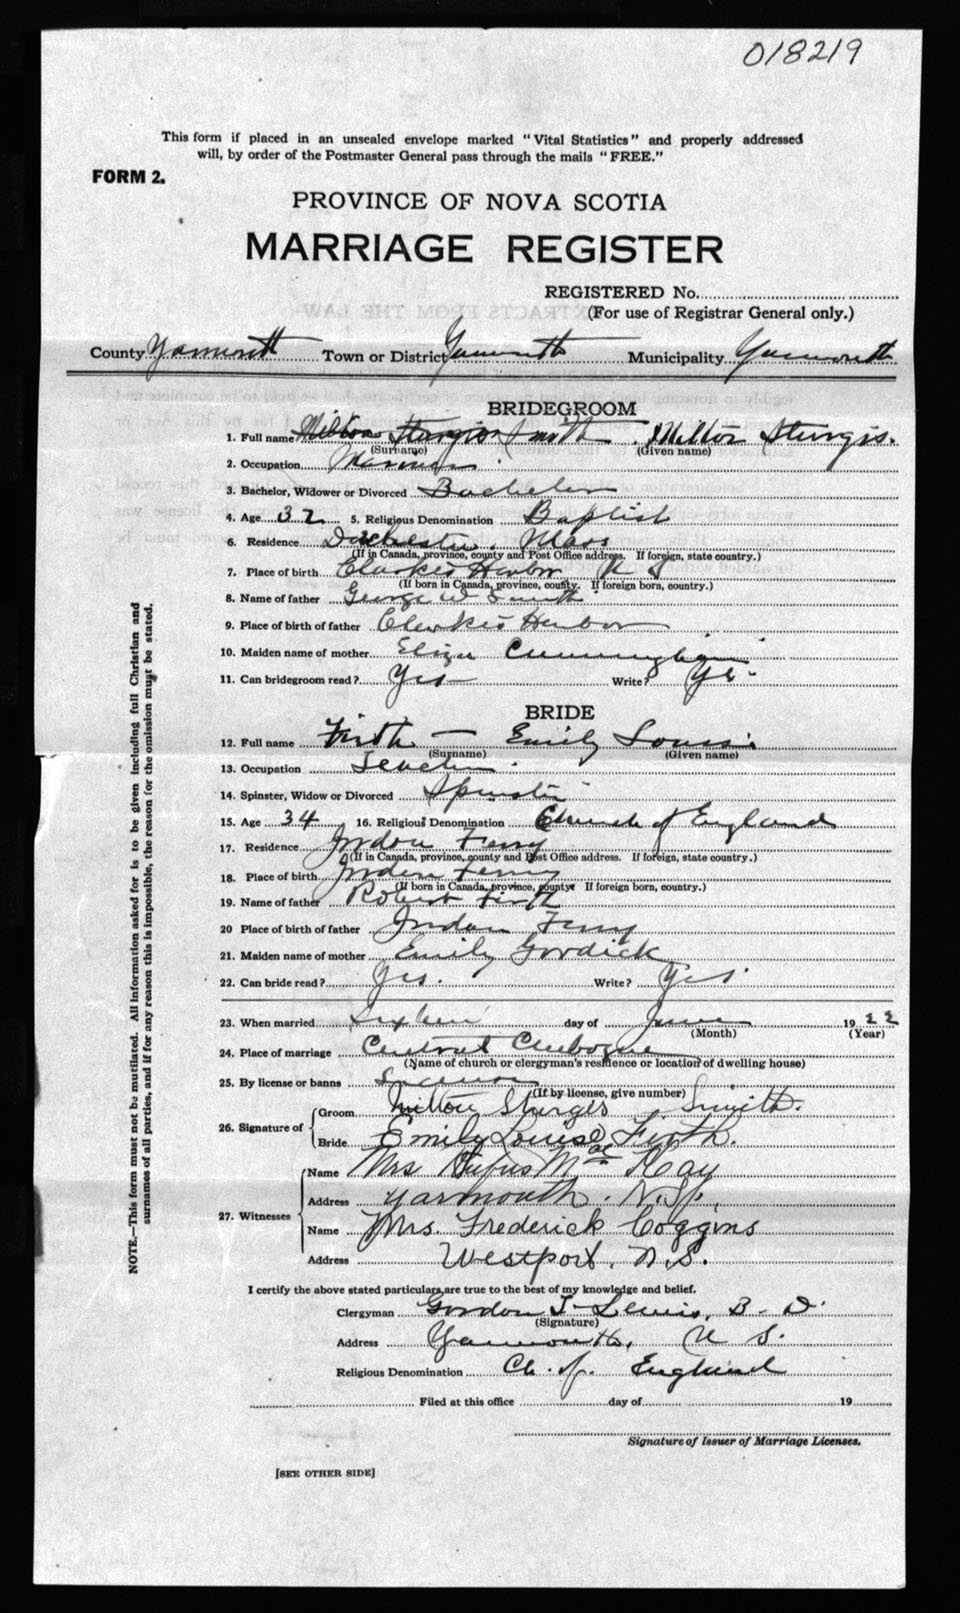 018219
This form if placed in an unsealed envelope marked "Vital Statistics" and properly addressed
will, by order of the Postmaster General pass through the mails "FREE."
FORM 2.
PROVINCE OF NOVA SCOTIA
MARRIAGE REGISTER
REGISTERED No.
(For use of Registrar General only.)
County Yarmouth Town or District Yarmouth Municipality Yarmouth
BRIDEGROOM
1. Full name Milton Sturgis Smith Milton Sturgis.
(Surname) (Given name)
2. Occupation Mariner
3. Bachelor, Widower or Divorced Bachelor
4. Age 32 5. Religious Denomination Baptist
6. Residence Dorchester, Mass
(If in Canada, province, county and Post Office address. If foreign, state country.)
7. Place of birth Clarkes Harbor N S
(If born in Canada, province, county. If foreign born, country.)
8. Name of father George W Smith
9. Place of birth of father Clarkes Harbor
10. Maiden name of mother Eliza Cunningham
11. Can bridegroom read? Yes Write? Yes
BRIDE
12. Full name Firth — Emily Louise
(Surname) (Given name)
13. Occupation Teacher
14. Spinster, Widow or Divorced Spinster
15. Age 34 16. Religious Denomination Church of England
17. Residence Jordan Ferry
(If in Canada, province, county and Post Office address. If foreign, state country.)
18. Place of birth Jordan Ferry
(If born in Canada, province, county. If foreign born, country.)
19. Name of father Robert Firth
20 Place of birth of father Jordan Ferry
21. Maiden name of mother Emily Gordick
22. Can bride read? Yes. Write? Yes
23. When married Sixteen day of June 1922
(Month) (Year)
24. Place of marriage Central Chebogue
(Name of church or clergyman's residence or location of dwelling house)
25. By license or banns License
(If by license, give number)
26. Signature of Groom Milton Sturgis Smith.
Bride Emily Louise Firth.
27. Witnesses Name Mrs Rufus Mac Kay
Address Yarmouth. N.S.
Name Mrs. Frederick Coggins
Address Westport, N.S.
I certify the above stated particulars are true to the best of my knowledge and belief.
Clergyman Gordon T. Lewis, B. D.
(Signature)
Address Yarmouth, N S.
Religious Denomination Ch. of England
Filed at this office day of 19
Signature of Issuer of Marriage Licenses.
[SEE OTHER SIDE]
NOTE.—This form must not be mutilated. All information asked for is to be given including full Christian and
surnames of all parties, and if for any reason this is impossible, the reason for the omission must be stated.